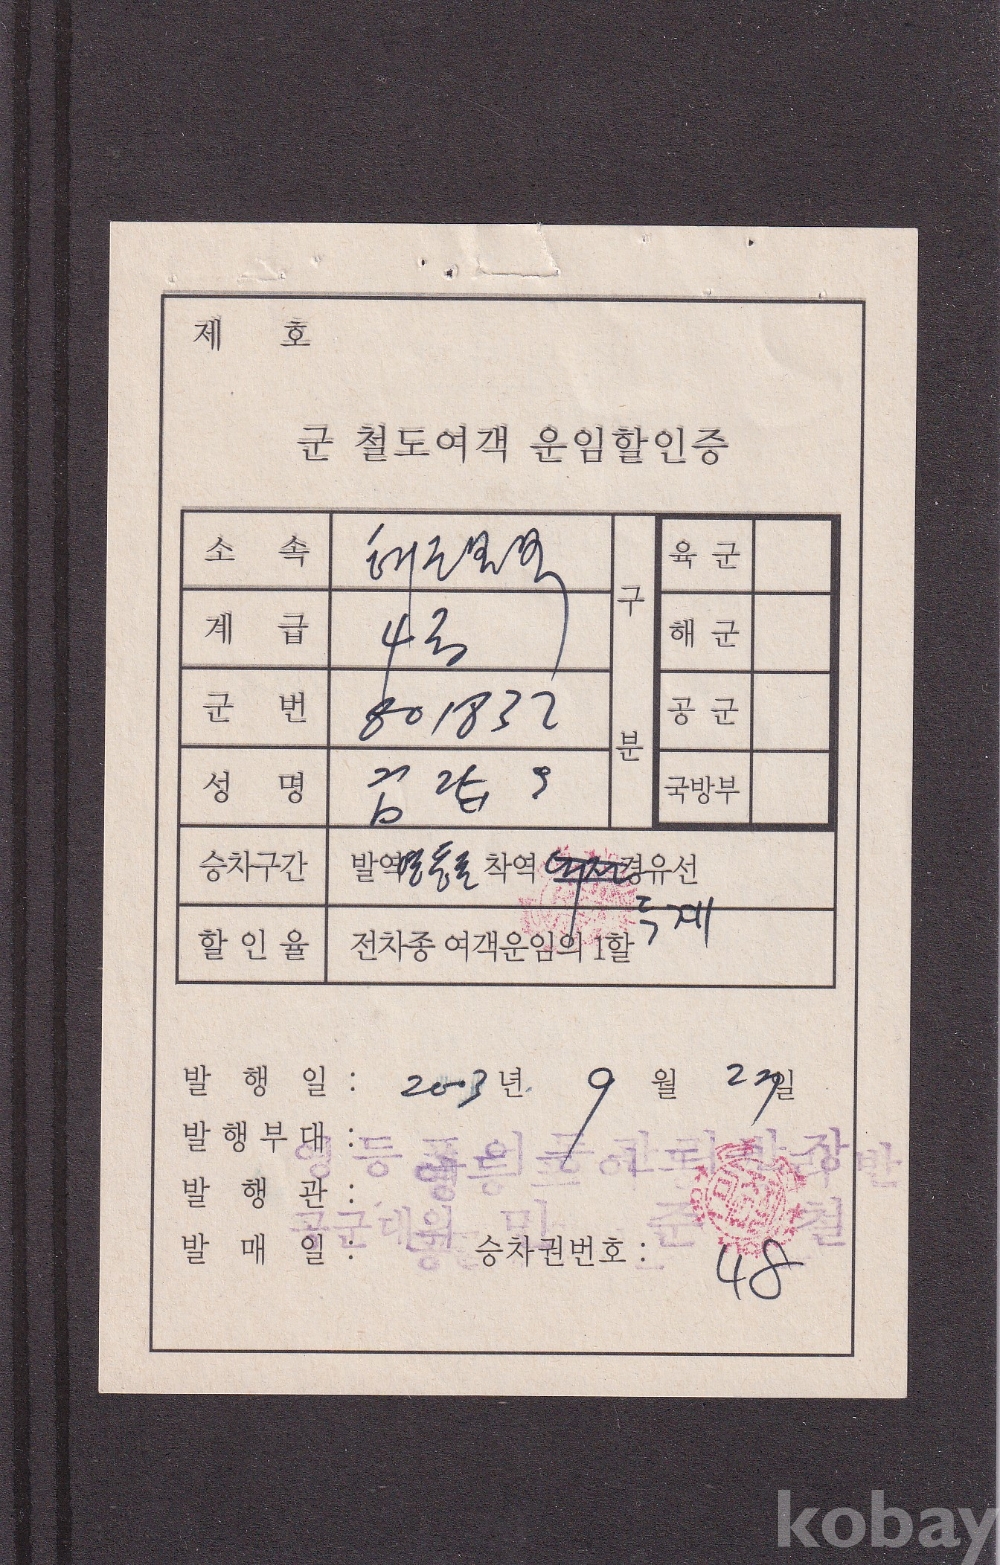 제 호
군 철도여객 운임할인증
소 속
계 급 4급
군 번 801832
성 명 김
구 분
육 군
해 군
공 군
국방부
승차구간 발역 영등포 착역 경유선
할 인 율 전차종 여객운임의 1할
발 행 일 : 2003년 9 월 27일
발 행 부 대 :
발 행 관 :
공군대위 민 준 철
발 매 일 : 승차권번호 :
48
kobay